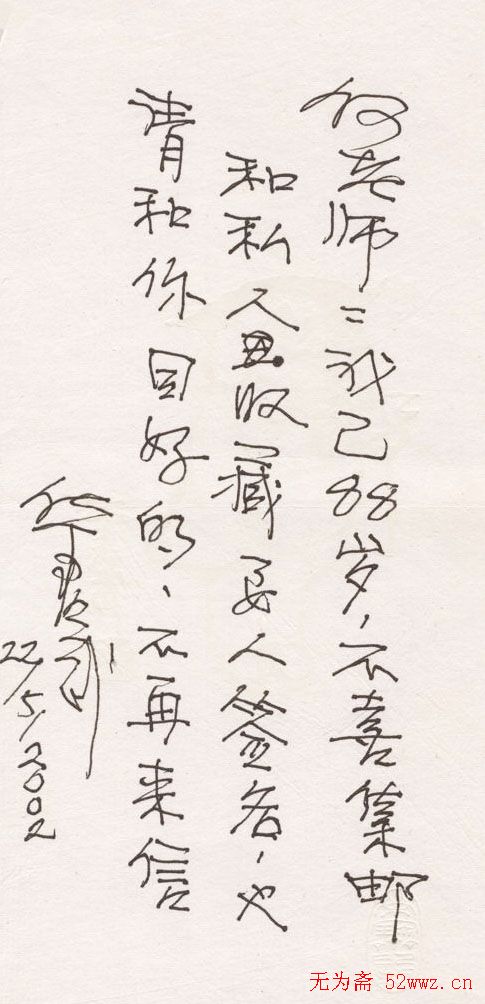 何老师：我已88岁，不喜集邮
和私人收藏要人签名，也
请和你同好的、不再来信
22/5/2002
无为斋 52wwz.cn